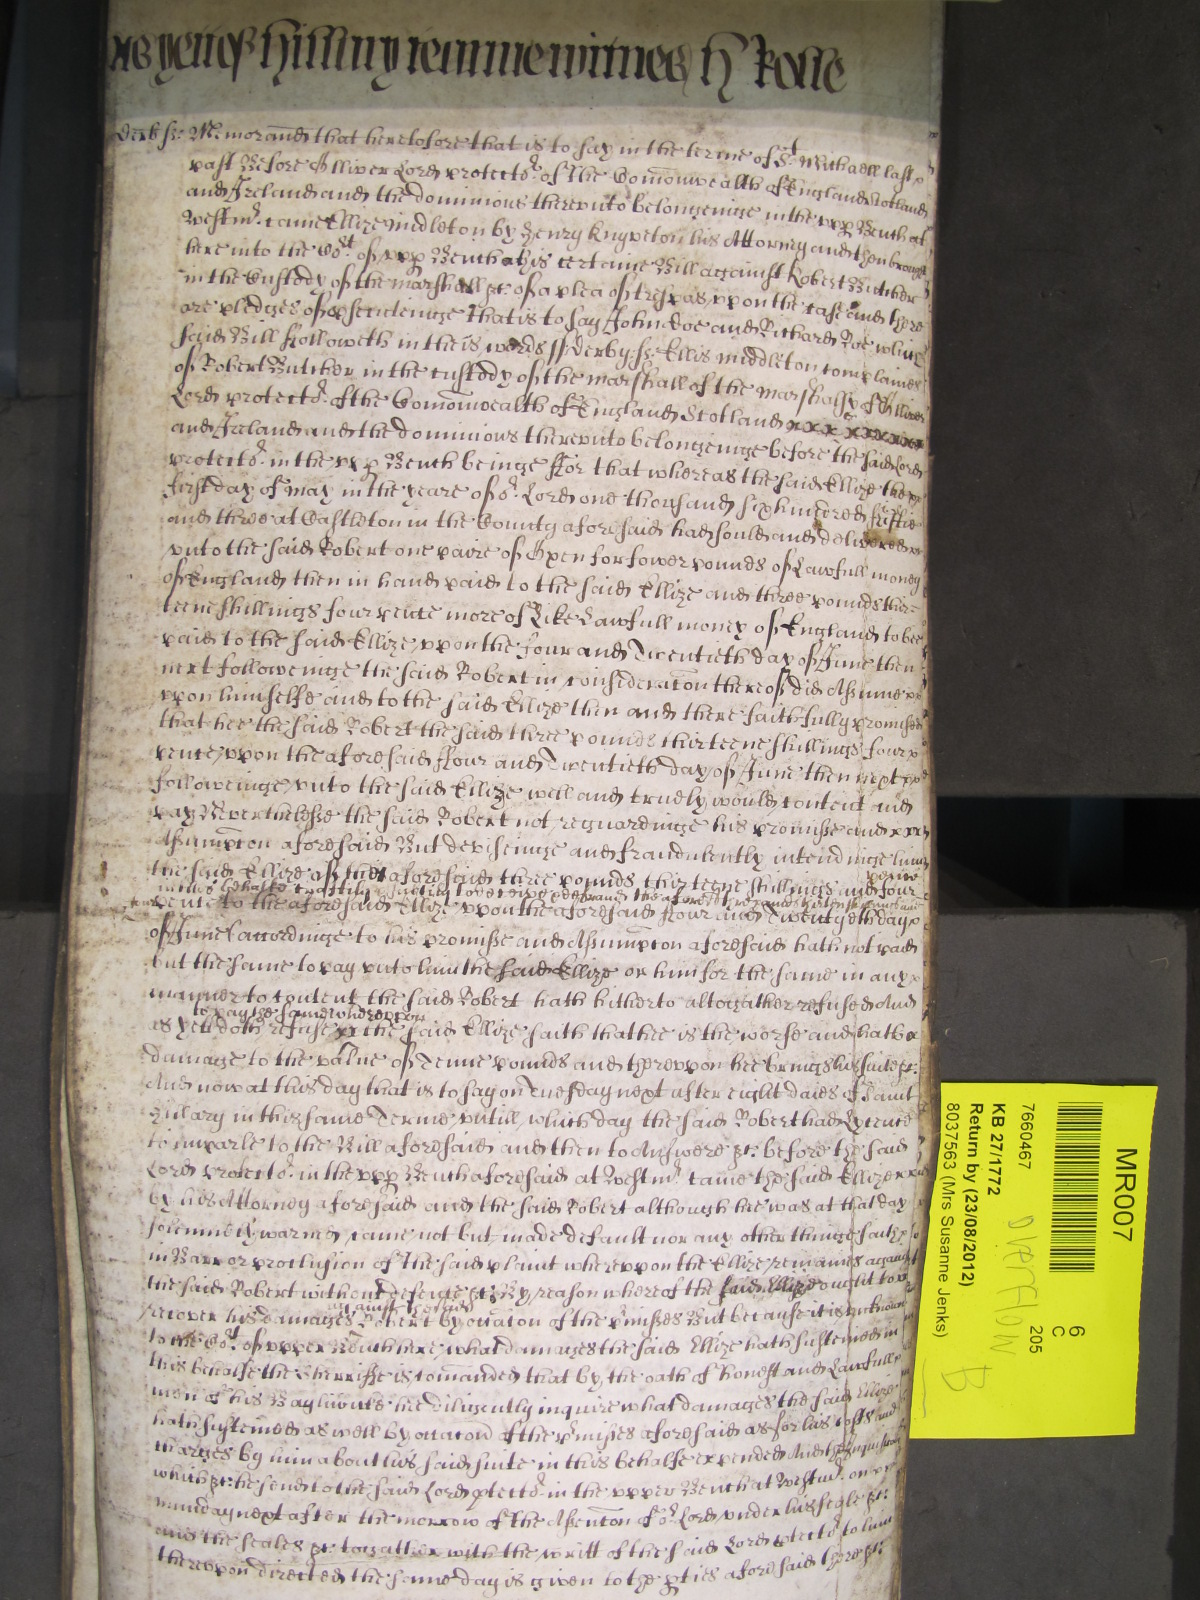 as yett of hillary terme witnes H Rolle
Derb ss: Memorand that heretofore that is to say in the terme of St Michaell last x
past Before Olliver Lord protectr. of the Comonwealth of England Scotland
and Ireland and the dominions thereunto belonginge in the upp Bench at
Westmr. came Ellize Middleton by Henry Knyveton his Attorney and then brought
here into the Cort. of upp Bench this certaine Bill against Robert Butcher
in the Custody of the marshall &c. of a plea of trespas upon the case and there
are pledges of prosecuteinge that is to say John doe and Richard Roe which
said Bill followeth in theis words ss Derby: ss: Ellis Middleton complaines
of Robert Butcher in the custody of the marshall of the marshalsy of Olliver
Lord protectr. of the Comonwealth of England Scotland xxxxxxxxx
and Ireland and the dominions thereunto belonginge before the said Lord
protectr. in the upp Bench beinge ffor that whereas the said Ellize the xx
first day of May in the yeare of or. Lord one thousand six hundred fiftie
and three at Castleton in the County aforesaid had sould and delivered xx
unto the said Robert one paire of Oxen for fower pounds of Lawfull money
of England then in hand paid to the said Ellize and three pounds thir=
teene shillings four pence more of Like Lawfull money of England to bee
paid to the said Ellize upon the four and Twentieth day of June then
next followeinge the said Robert in consideracon thereof did Assume xx
upon himselfe and to the said Ellize then and there faithfully promised
that hee the said Robert the said three pounds thirteene shillings four x
pence upon the aforesaid ffour and Twentieth day of June then next xx
followeinge unto the said Ellize well and truely would content and
pay Neverthelesse the said Robert not reguardinge his promisse and xxx
Assumpcon aforesaid But deviseinge and fraudulently intendinge him
the said Ellize of the aforesaid three pounds thirteene shillings and four pence
in this behalfe craftily
pence to the aforesaid Ellize upon the aforesaid ffour and Twentyeth day x
of June accordinge to his promisse and Assumpcon aforesaid hath not paid
but the same to pay unto him the said Ellize or him for the same in any x
manner to content the said Robert hath hitherto altogather refused And
to pay the same whereupon
as yett doth refuse the said Ellize saith that hee is the worse and hath x
damage to the value of Tenne pounds and thereupon hee brings his suite &c.
And now at this day that is to say on Tuesday next after eight daies of Saint
Hilary in this same Terme untill which day the said Robert had Lycence
to imparle to the Bill aforesaid and then to Answere &c: before the said
Lord protectr. in the upp Bench aforesaid at Westmr. came the said Ellize xxx
by his Attorney aforesaid and the said Robert although hee was at that day
solemnely warned came not but made default nor any other thinge saith x
in Barr or preclusion of the said plaint whereupon the Ellize remaines against
the said Robert without defence &c: By reason whereof the said Ellize ought to x
against the said
recover his damages Robert by occacon of the pmisses But because it is unknowne
to the Cort. of upper Bench here what damages the said Ellize hath susteined in
this behalfe the Sherriffe is comanded that by the oath of honest and Lawfull x
men of his Bayliwick hee diligently inquire what damages the said Ellize
hath susteined as well by occacon of the pmisses aforesaid as for his costs and
charges by him about his said suite in this behalfe expended And the Inquisicon
which &c: he send to the said Lord ptectr. in the upper Bench at Westmr. on xx
munday next after the morrow of the Assencon of or. Lord under his seale &c:
and the seales &c: togather with the writt of the said Lord ptectr. to him
thereupon directed the same day is given to the pties aforesaid there &c:
MR007
6
C
205
7660467
KB 27/1772
Return by (23/08/2012)
8037563 (Mrs Susanne Jenks)
OVERFLOW
B